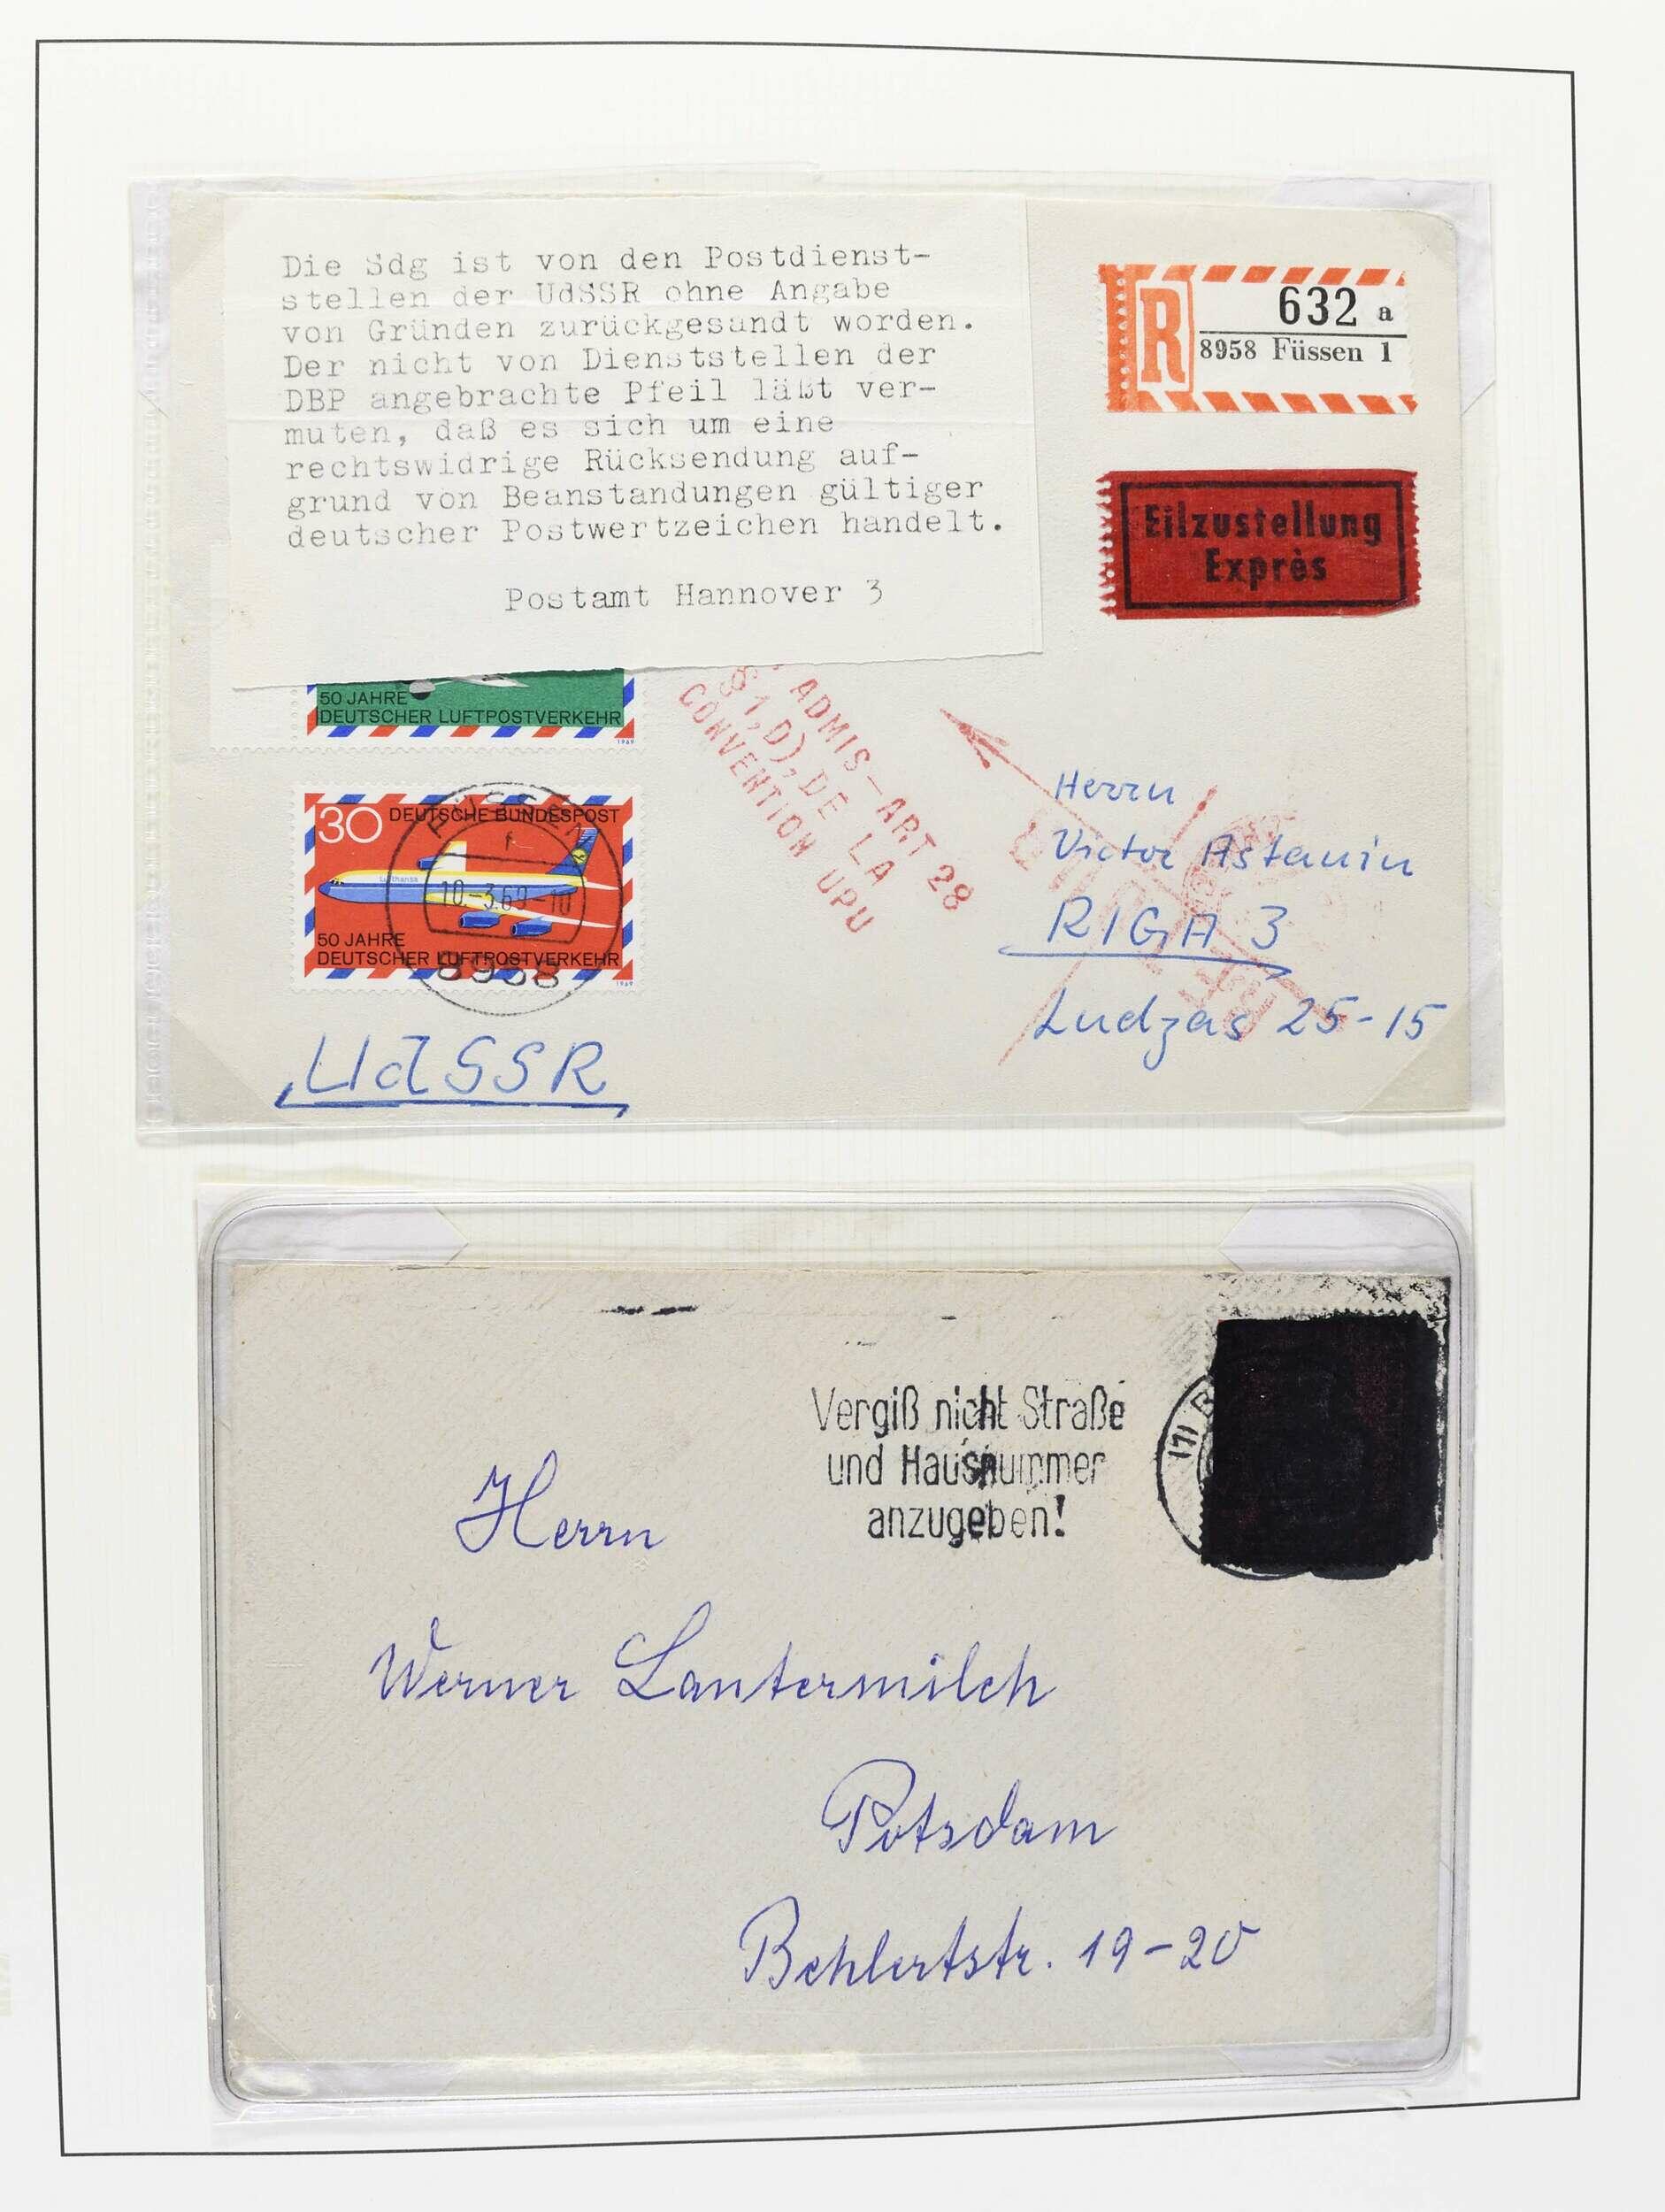 Die Sdg ist von den Postdienst-
stellen der UdSSR ohne Angabe
von Gründen zurückgesandt worden.
Der nicht von Dienststellen der
DBP angebrachte Pfeil läßt ver-
muten, daß es sich um eine
rechtswidrige Rücksendung auf-
grund von Beanstandungen gültiger
deutscher Postwertzeichen handelt.
Postamt Hannover 3
R
632 a
8958 Füssen 1
Eilzustellung
Exprès
50 JAHRE
DEUTSCHER LUFTPOSTVERKEHR
1969
ADMIS—ART 28
§1,D), DE LA
CONVENTION UPU
30 DEUTSCHE BUNDESPOST
Lufthansa
50 JAHRE
DEUTSCHER LUFTPOSTVERKEHR
1969
FÜSSEN
f
10.-3.69-10
8958
Herrn
Victor Astanin
RIGA 3
Ludzas 25-15
UdSSR
Vergiß nicht Straße
und Hausnummer
anzugeben!
(1) B
Herrn
Werner Lantermilch
Potsdam
Behlertstr. 19-20